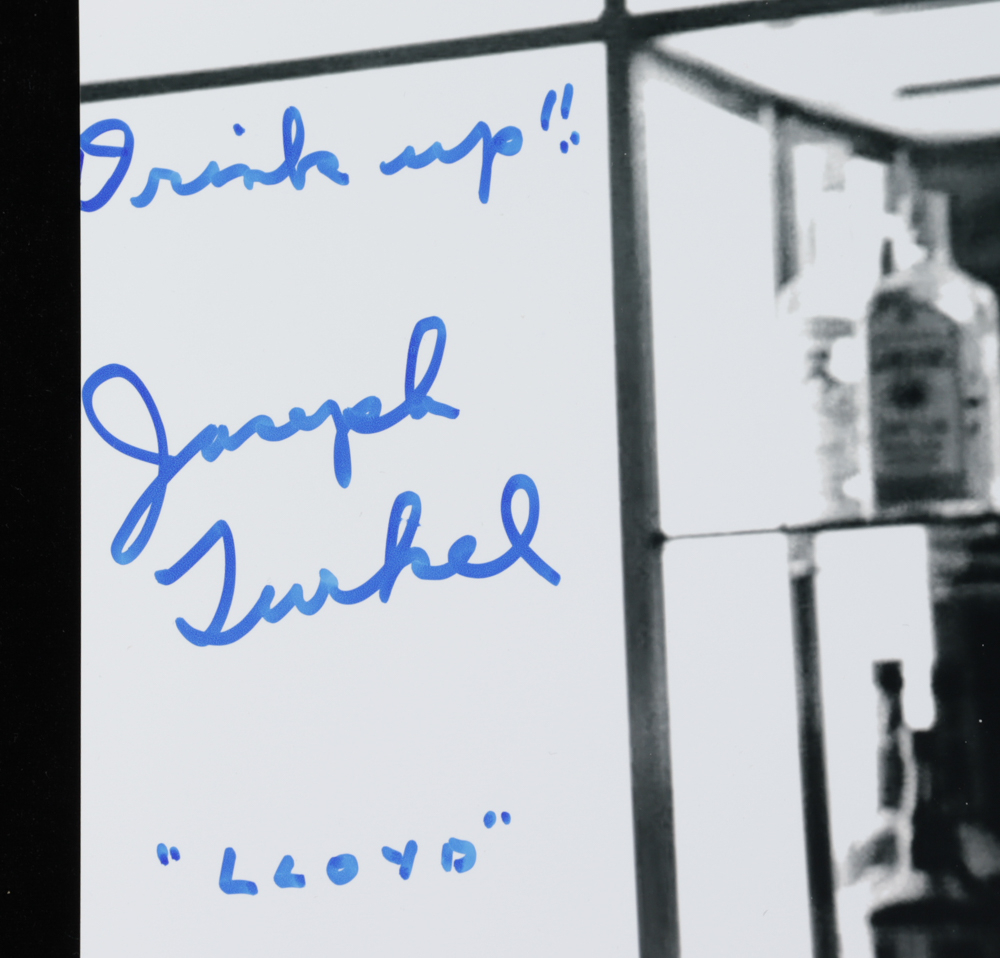 Drink up!!
Joseph
Turkel
"LLOYD"